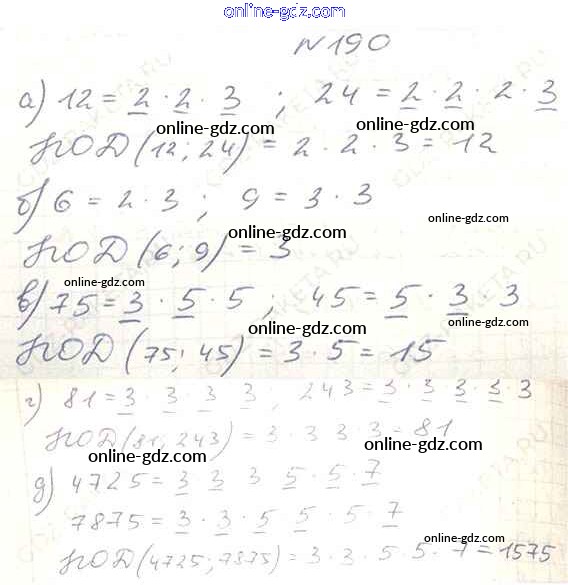 online-gdz.com
№190
а) 12 = 2 · 2 · 3 ; 24 = 2 · 2 · 2 · 3
online-gdz.com online-gdz.com
НОД (12; 24) = 2 · 2 · 3 = 12
б) 6 = 2 · 3 ; 9 = 3 · 3
online-gdz.com online-gdz.com
НОД (6; 9) = 3
online-gdz.com
в) 75 = 3 · 5 · 5 ; 45 = 5 · 3 · 3
online-gdz.com
НОД (75; 45) = 3 · 5 = 15
г) 81 = 3 · 3 · 3 · 3 ; 243 = 3 · 3 · 3 · 3 · 3
НОД (81; 243) = 3 · 3 3 · 3 = 81
online-gdz.com
online-gdz.com
д) 4725 = 3 3 3 5 · 5 · 7
7875 = 3 · 3 · 5 5 · 5 · 7
online-gdz.com
НОД (4725; 7875) = 3 · 3 · 5 · 5 · 7 = 1575
online-gdz.com